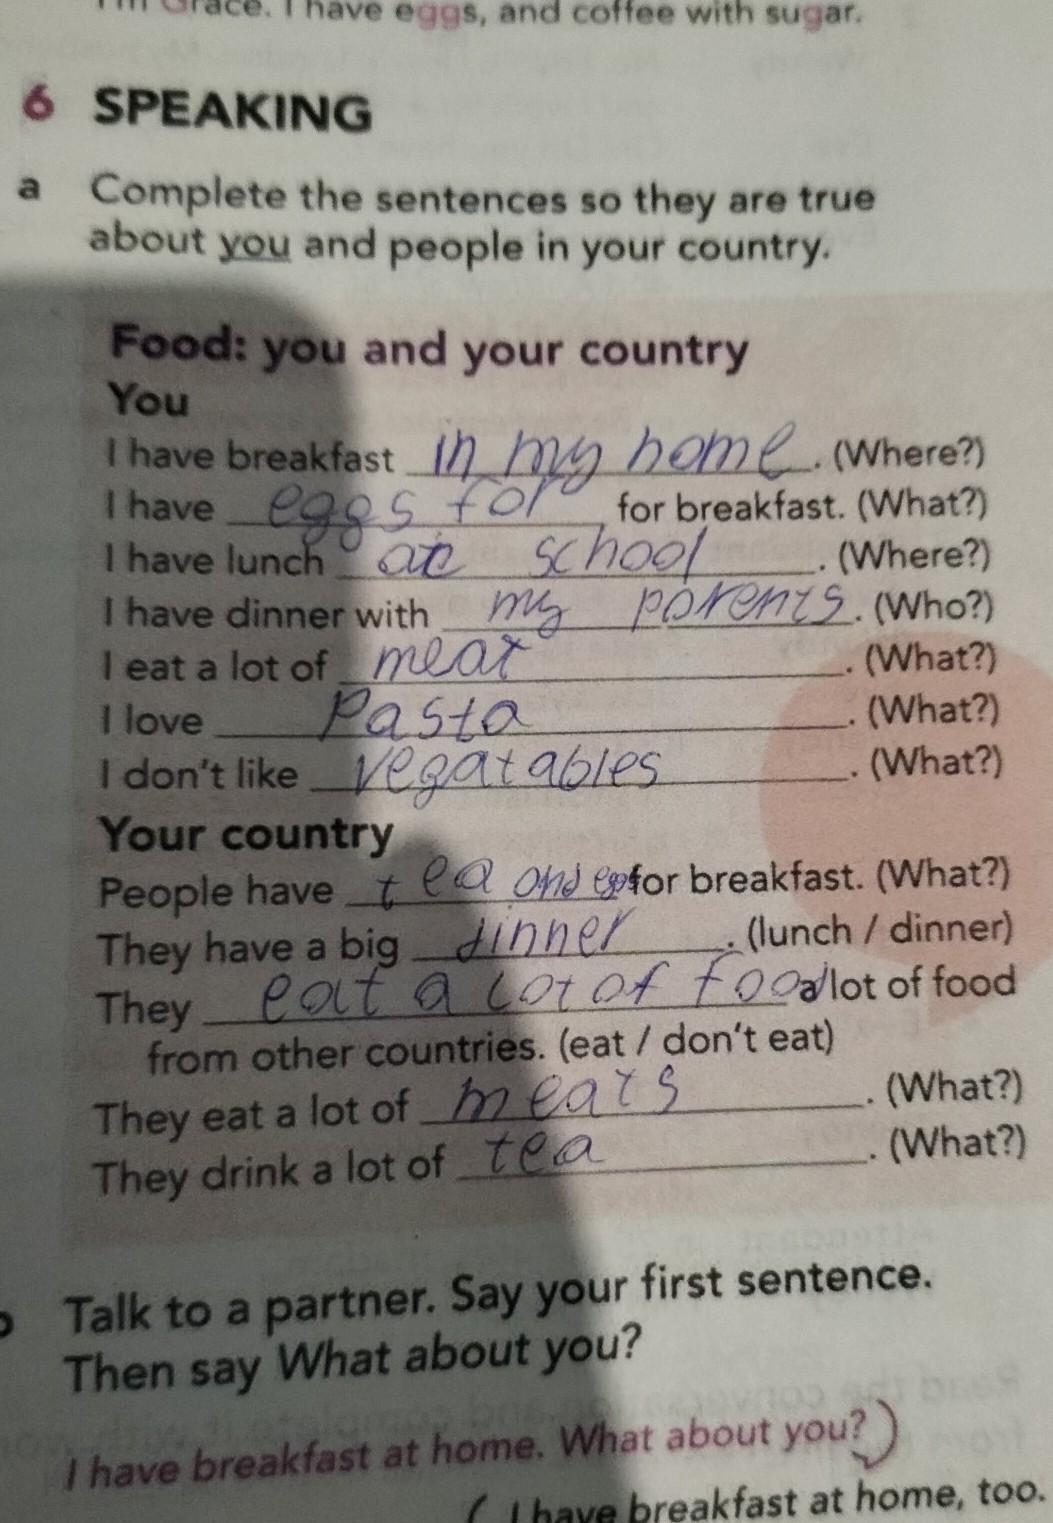 I'm Grace. I have eggs, and coffee with sugar.
6 SPEAKING
a Complete the sentences so they are true
about you and people in your country.
Food: you and your country
You
I have breakfast in my home. (Where?)
I have eggs for for breakfast. (What?)
I have lunch at school. (Where?)
I have dinner with my parents. (Who?)
I eat a lot of meat. (What?)
I love Pasta. (What?)
I don't like vegatables. (What?)
Your country
People have tea and eggs for breakfast. (What?)
They have a big dinner. (lunch / dinner)
They eat a lot of food a lot of food
from other countries. (eat / don't eat)
They eat a lot of meats. (What?)
They drink a lot of tea. (What?)
Talk to a partner. Say your first sentence.
Then say What about you?
I have breakfast at home. What about you?
I have breakfast at home, too.